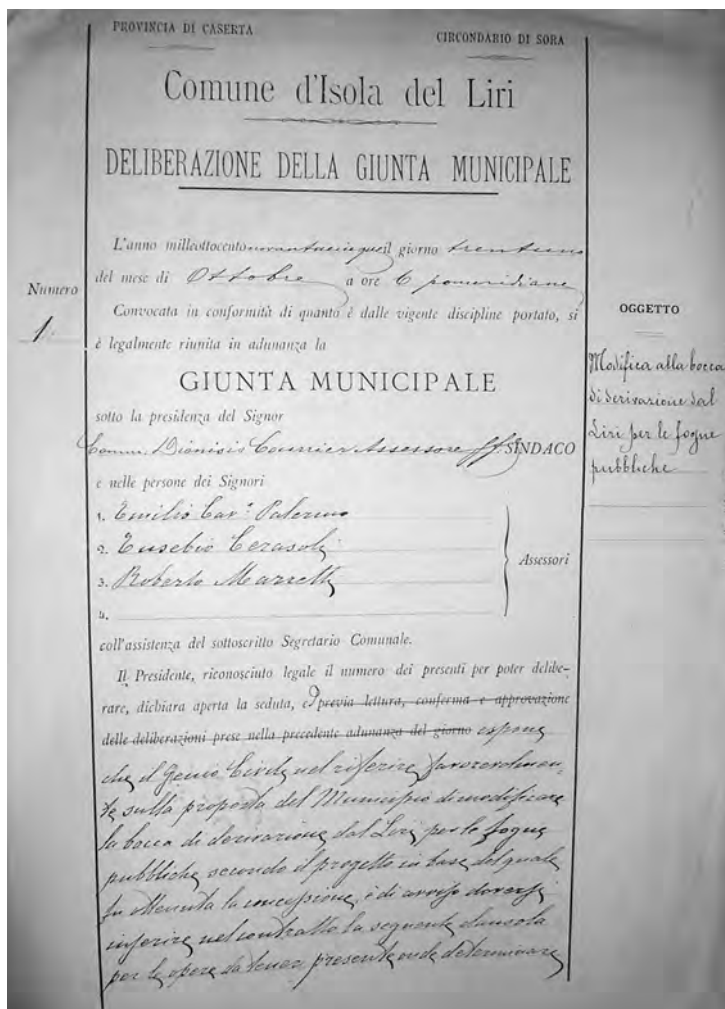 PROVINCIA DI CASERTA
CIRCONDARIO DI SORA
Comune d'Isola del Liri
DELIBERAZIONE DELLA GIUNTA MUNICIPALE
L'anno milleottocento novantacinque il giorno trentuno
del mese di Ottobre a ore 6 pomeridiane
Numero
1.
Convocata in conformità di quanto è dalle vigente discipline portato, si
è legalmente riunita in adunanza la
GIUNTA MUNICIPALE
OGGETTO
Modifica alla bocca
di derivazione dal
Liri per le fogne
pubbliche
sotto la presidenza del Signor
Comm. Dionisio Courrier Assessore ff. SINDACO
e nelle persone dei Signori
1. Emilio Cav. Palermo
2. Eusebio Cerasoli
3. Roberto
4.
Assessori
coll'assistenza del sottoscritto Segretario Comunale.
Il Presidente, riconosciuto legale il numero dei presenti per poter delibe-
rare, dichiara aperta la seduta, e previa lettura, conferma e approvazione
delle deliberazioni prese nella precedente adunanza del giorno espone
che il Genio Civile nel riferire favorevolmen-
te sulla proposta del Municipio di modificare
la bocca di derivazione dal Liri per le fogne
pubbliche secondo il progetto in base del quale
fu ottenuta la concessione, è di avviso doversi
inserire nel contratto la seguente clausola
per le opere da tener presente onde determinare